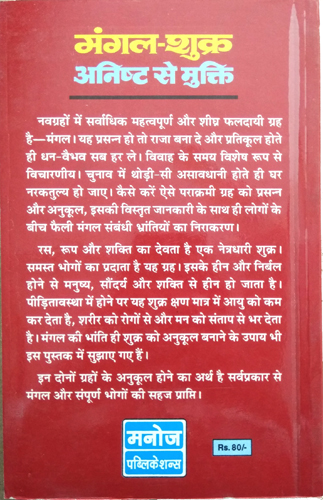 मंगल-शुक्र
अनिष्ट से मुक्ति
नवग्रहों में सर्वाधिक महत्वपूर्ण और शीघ्र फलदायी ग्रह
है—मंगल। यह प्रसन्न हो तो राजा बना दे और प्रतिकूल होते
ही धन-वैभव सब हर ले। विवाह के समय विशेष रूप से
विचारणीय। चुनाव में थोड़ी-सी असावधानी होते ही घर
नरकतुल्य हो जाए। कैसे करें ऐसे पराक्रमी ग्रह को प्रसन्न
और अनुकूल, इसकी विस्तृत जानकारी के साथ ही लोगों के
बीच फैली मंगल संबंधी भ्रांतियों का निराकरण।
रस, रूप और शक्ति का देवता है एक नेत्रधारी शुक्र।
समस्त भोगों का प्रदाता है यह ग्रह। इसके हीन और निर्बल
होने से मनुष्य, सौंदर्य और शक्ति से हीन हो जाता है।
पीड़ितावस्था में होने पर यह शुक्र क्षण मात्र में आयु को कम
कर देता है, शरीर को रोगों से और मन को संताप से भर देता
है। मंगल की भांति ही शुक्र को अनुकूल बनाने के उपाय भी
इस पुस्तक में सुझाए गए हैं।
इन दोनों ग्रहों के अनुकूल होने का अर्थ है सर्वप्रकार से
मंगल और संपूर्ण भोगों की सहज प्राप्ति।
मनोज
पब्लिकेशन्स
Rs. 80/-